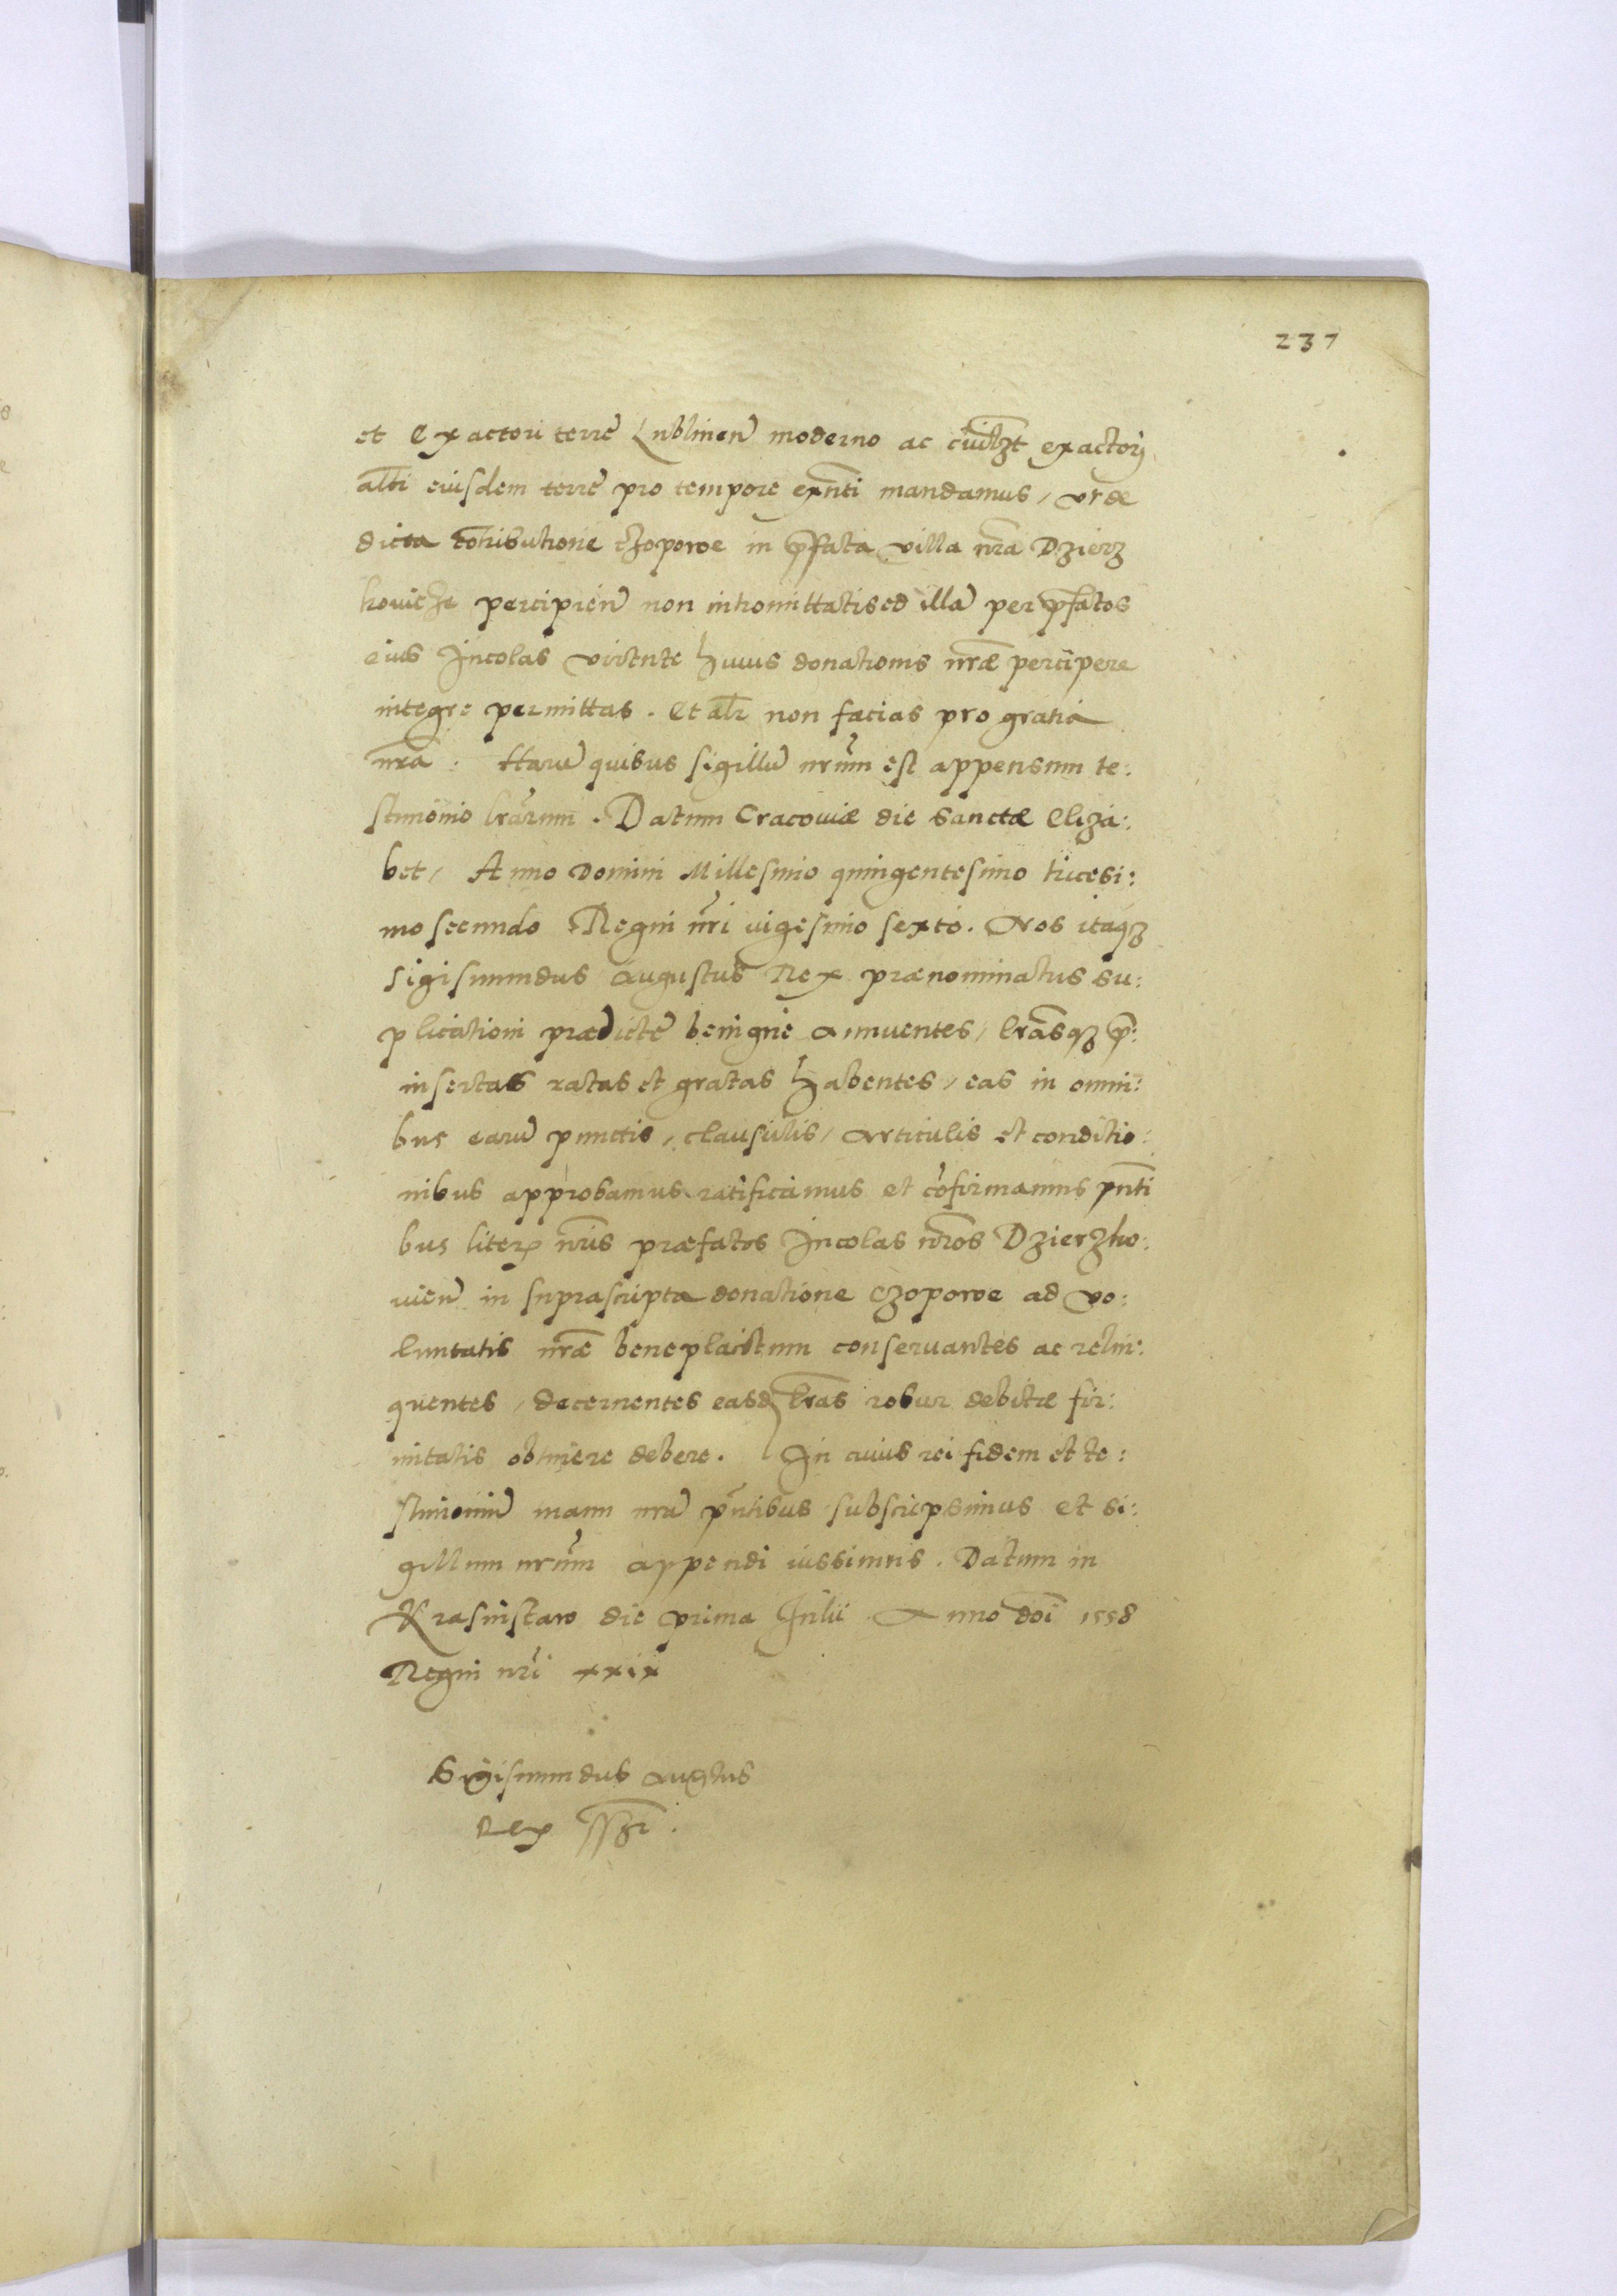 237
et Exactori terre Lublinen moderno ac cuilbzt exactori
alti eiusdem terre pro tempore exnti mandamus, vt de
dicta cotributione czopowe in pfata villa nra Dzierz
kowicze percipien non intromittatis ed illa per pfatos
eius Incolas virtute huius donationis nrae percipere
integre permittas. Et alr non facias pro gratia
nra. Haru quibus sigillu nrum est appensum te:
stimonio lrarum. Datum Cracouiae die Sanctae Eliza:
bet, Anno Domini Millesimo quingentesimo tricesi:
mo secundo Regni nri vigesimo sexto. Nos itaqz
Sigismundus Augustus Rex praenominatus su:
plicationi praedicte benigne annuentes, lrasqz p:
insertas ratas et gratas habentes, eas in omni:
bus earu punctis, clausulis, articulis et conditio:
nibus approbamus ratificamus et cofirmamus pnti
bus literis nris praefatos Incolas nros Dzierzko:
vien in suprascripta donatione Czopowe ad vo:
luntatis nrae beneplacitum conseruantes ac relin:
quentes, decernentes easd lras robur debitae fir:
mitatis obtinere debere. In cuius rei fidem et te:
stimoniu manu nra pntibus subscripsimus et si:
gillum nrum appendi iussimus. Datum in
Krasnistaw die prima Iulii Anno doi 1558
Regni nri xxix
Sigismundus Augtus
Rex sszt.